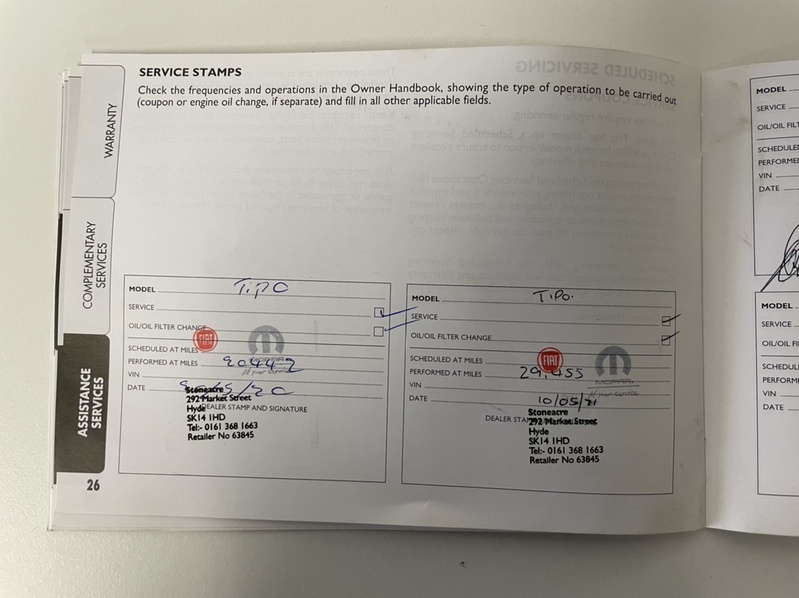 SERVICE STAMPS
Check the frequencies and operations in the Owner Handbook, showing the type of operation to be carried out
(coupon or engine oil change, if separate) and fill in all other applicable fields.
WARRANTY
COMPLEMENTARY
SERVICES
ASSISTANCE
SERVICES
26
MODEL TIPO
SERVICE
OIL/OIL FILTER CHANGE
FIAT
SCHEDULED AT MILES
MOPAR
PERFORMED AT MILES 20442
At your service
VIN
DATE
Stoneacre
292 Market Street
Hyde
DEALER STAMP AND SIGNATURE
SK14 1HD
Tel:- 0161 368 1663
Retailer No 63845
MODEL TIPO.
SERVICE
OIL/OIL FILTER CHANGE
FIAT
SCHEDULED AT MILES
PERFORMED AT MILES 29,455
MOPAR
VIN
At your service
DATE 10/05/21
Stoneacre
DEALER
292 Market Street
Hyde
SK14 1HD
Tel:- 0161 368 1663
Retailer No 63845
MODEL
SERVICE
OIL/OIL FILT
SCHEDULED
PERFORMED
VIN
DATE
MODEL
SERVICE
OIL/OIL FI
SCHEDUL
PERFORM
VIN
DATE